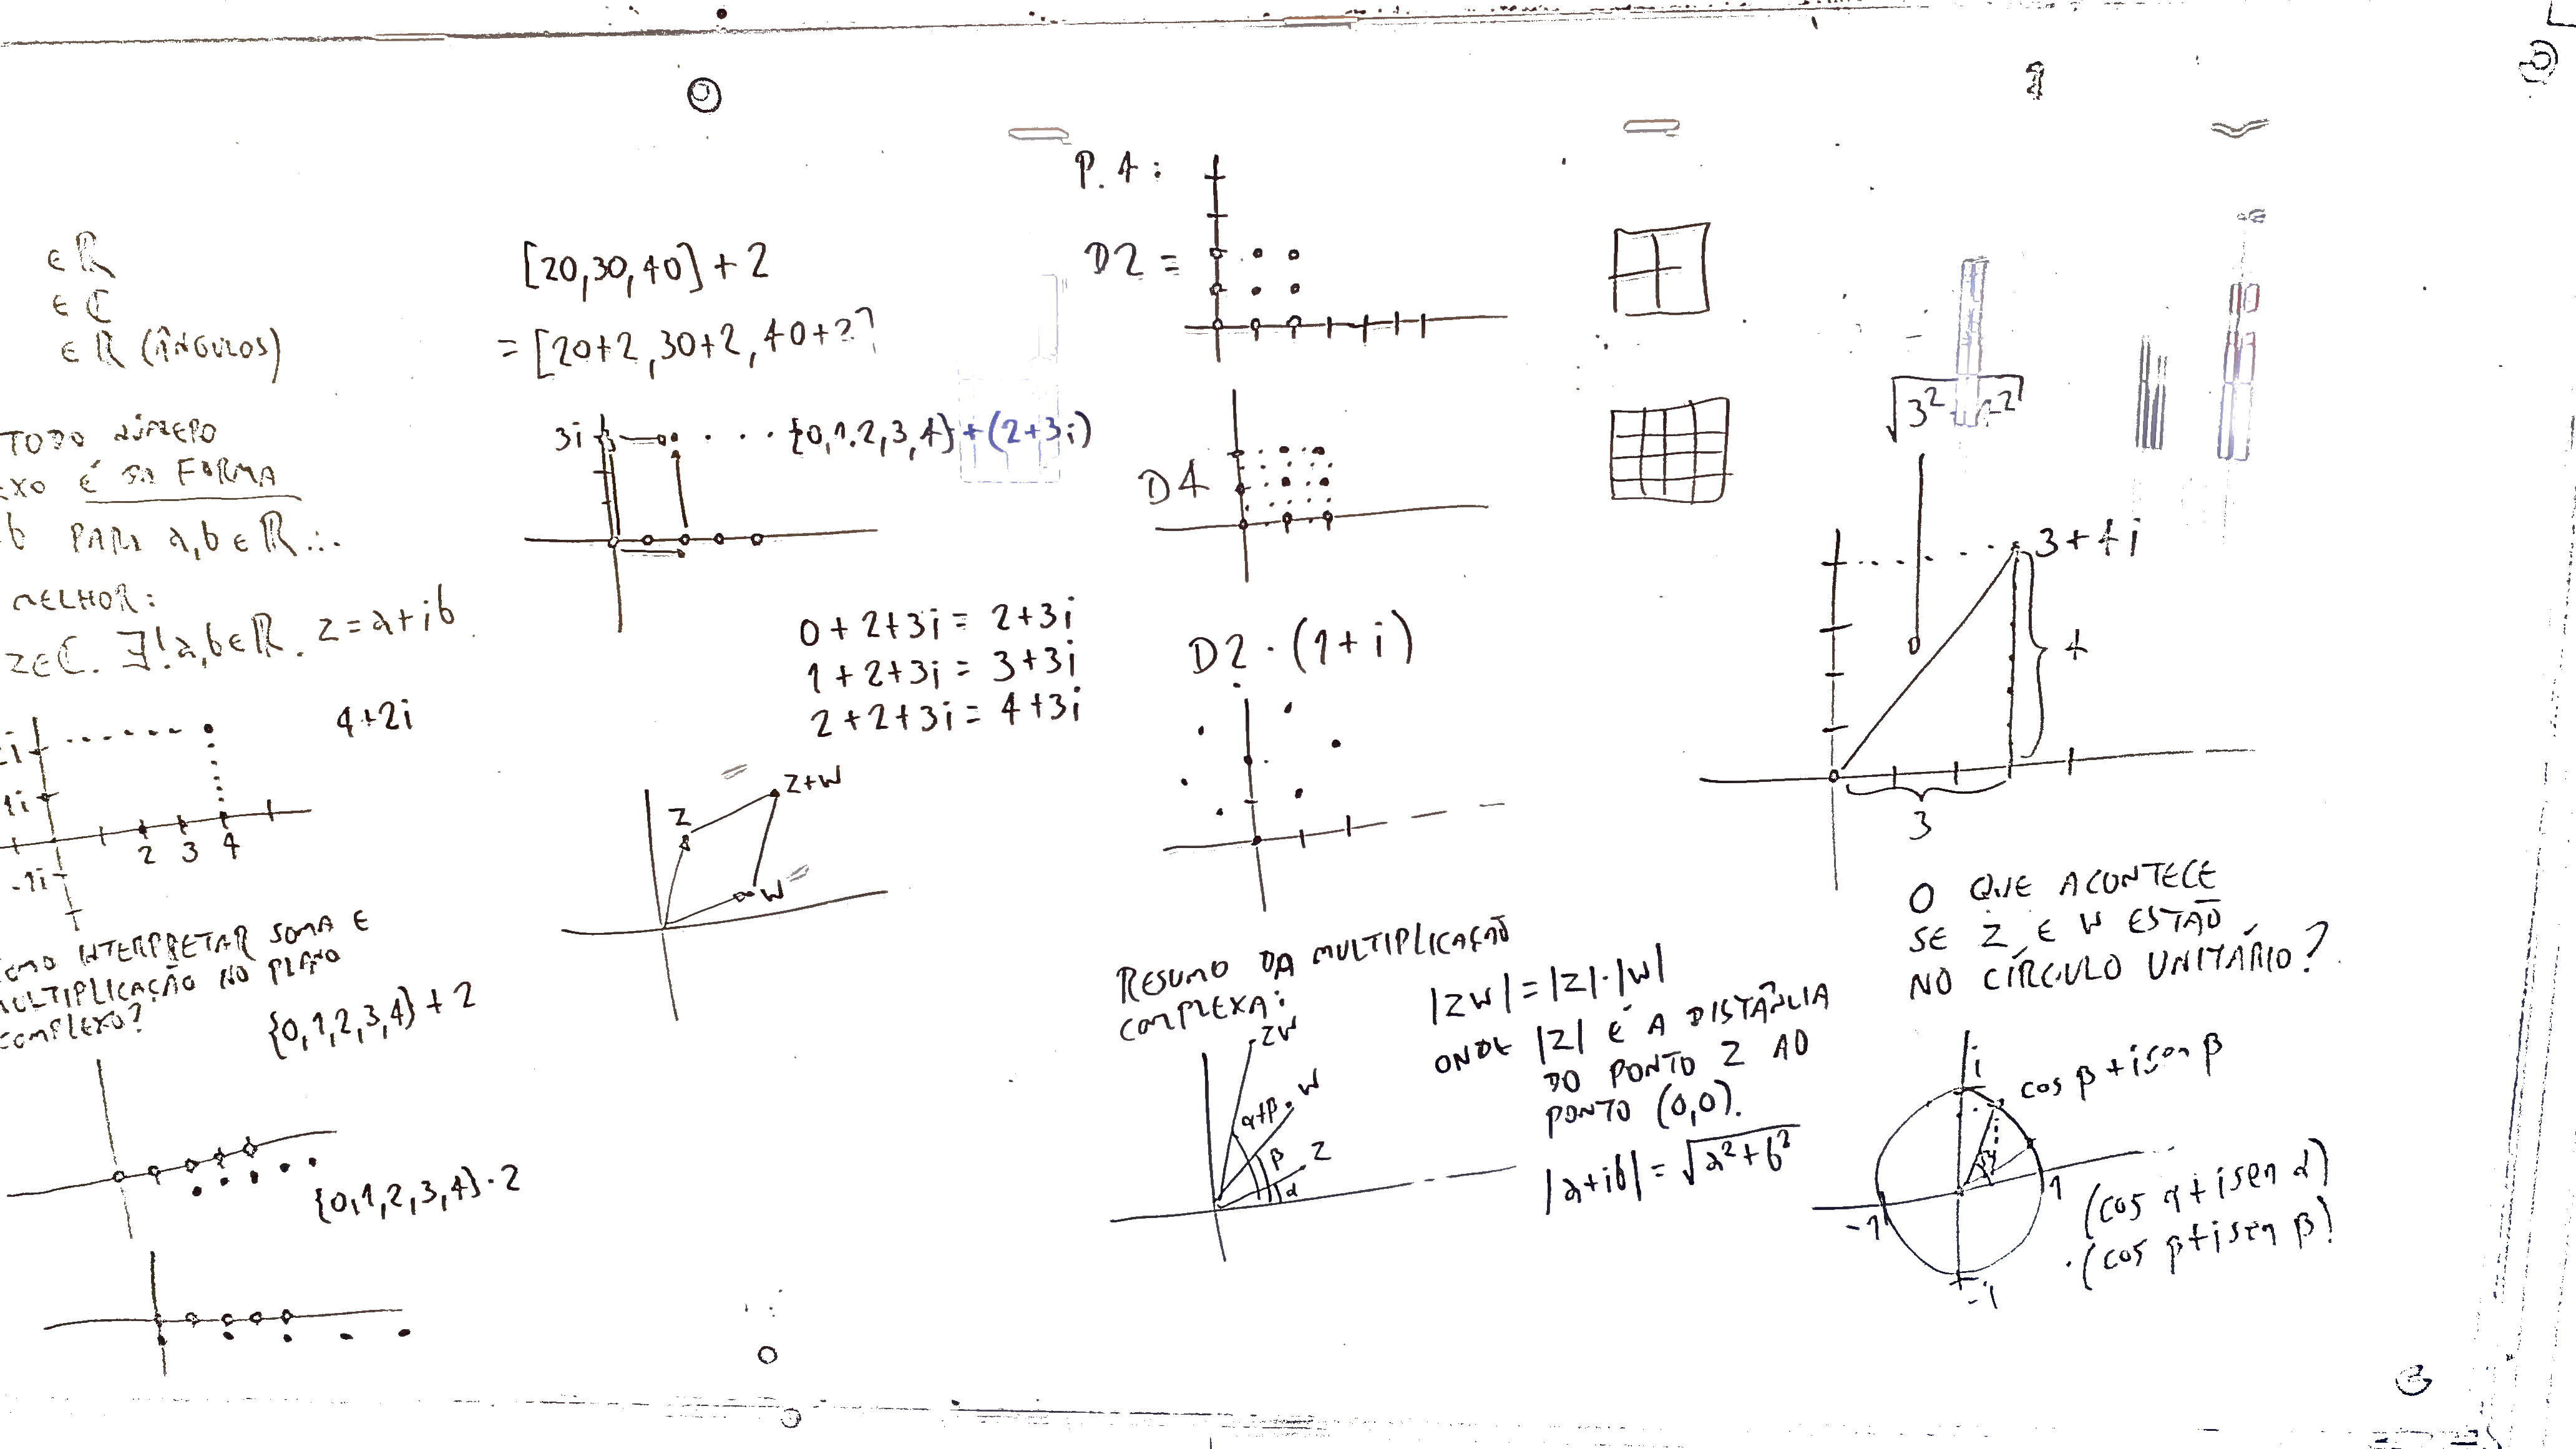 ∈ ℝ
∈ ℂ
∈ ℝ (ÂNGULOS)
TODO NÚMERO
EXO É DA FORMA
b PARA a,b ∈ ℝ ∴
MELHOR:
z∈ℂ. ∃! a,b∈ℝ. z=a+ib
4+2i
1i
2 3 4
-1i
COMO INTERPRETAR SOMA E
MULTIPLICAÇÃO NO PLANO
COMPLEXO?
{0,1,2,3,4}+2
{0,1,2,3,4}·2
[20,30,40]+2
=[20+2,30+2,40+2]
3i
{0,1,2,3,4}+(2+3i)
0+2+3i=2+3i
1+2+3i=3+3i
2+2+3i=4+3i
z
z+w
w
P.4:
D2=
D4
D2·(1+i)
RESUMO DA MULTIPLICAÇÃO
COMPLEXA:
zw
w
α+β
β
z
α
|zw|=|z|·|w|
ONDE |z| É A DISTÂNCIA
DO PONTO z AO
PONTO (0,0).
|a+ib|=√a²+b²
3+4i
4
3
O QUE ACONTECE
SE z E w ESTÃO
NO CÍRCULO UNITÁRIO?
i
cos β+isen β
1
-1
-i
(cos α+isen α)
·(cos β+isen β)